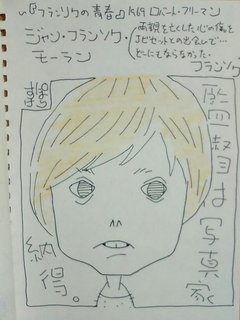 『フランソワの青春』1969 ロバート・フリーマン
ジャン・フランソワ・
モーラン
両親を亡くした心の傷を
J.ビセットとの出会いで…
どーにもならなかった
フランソワ
監督は写真家
納得。